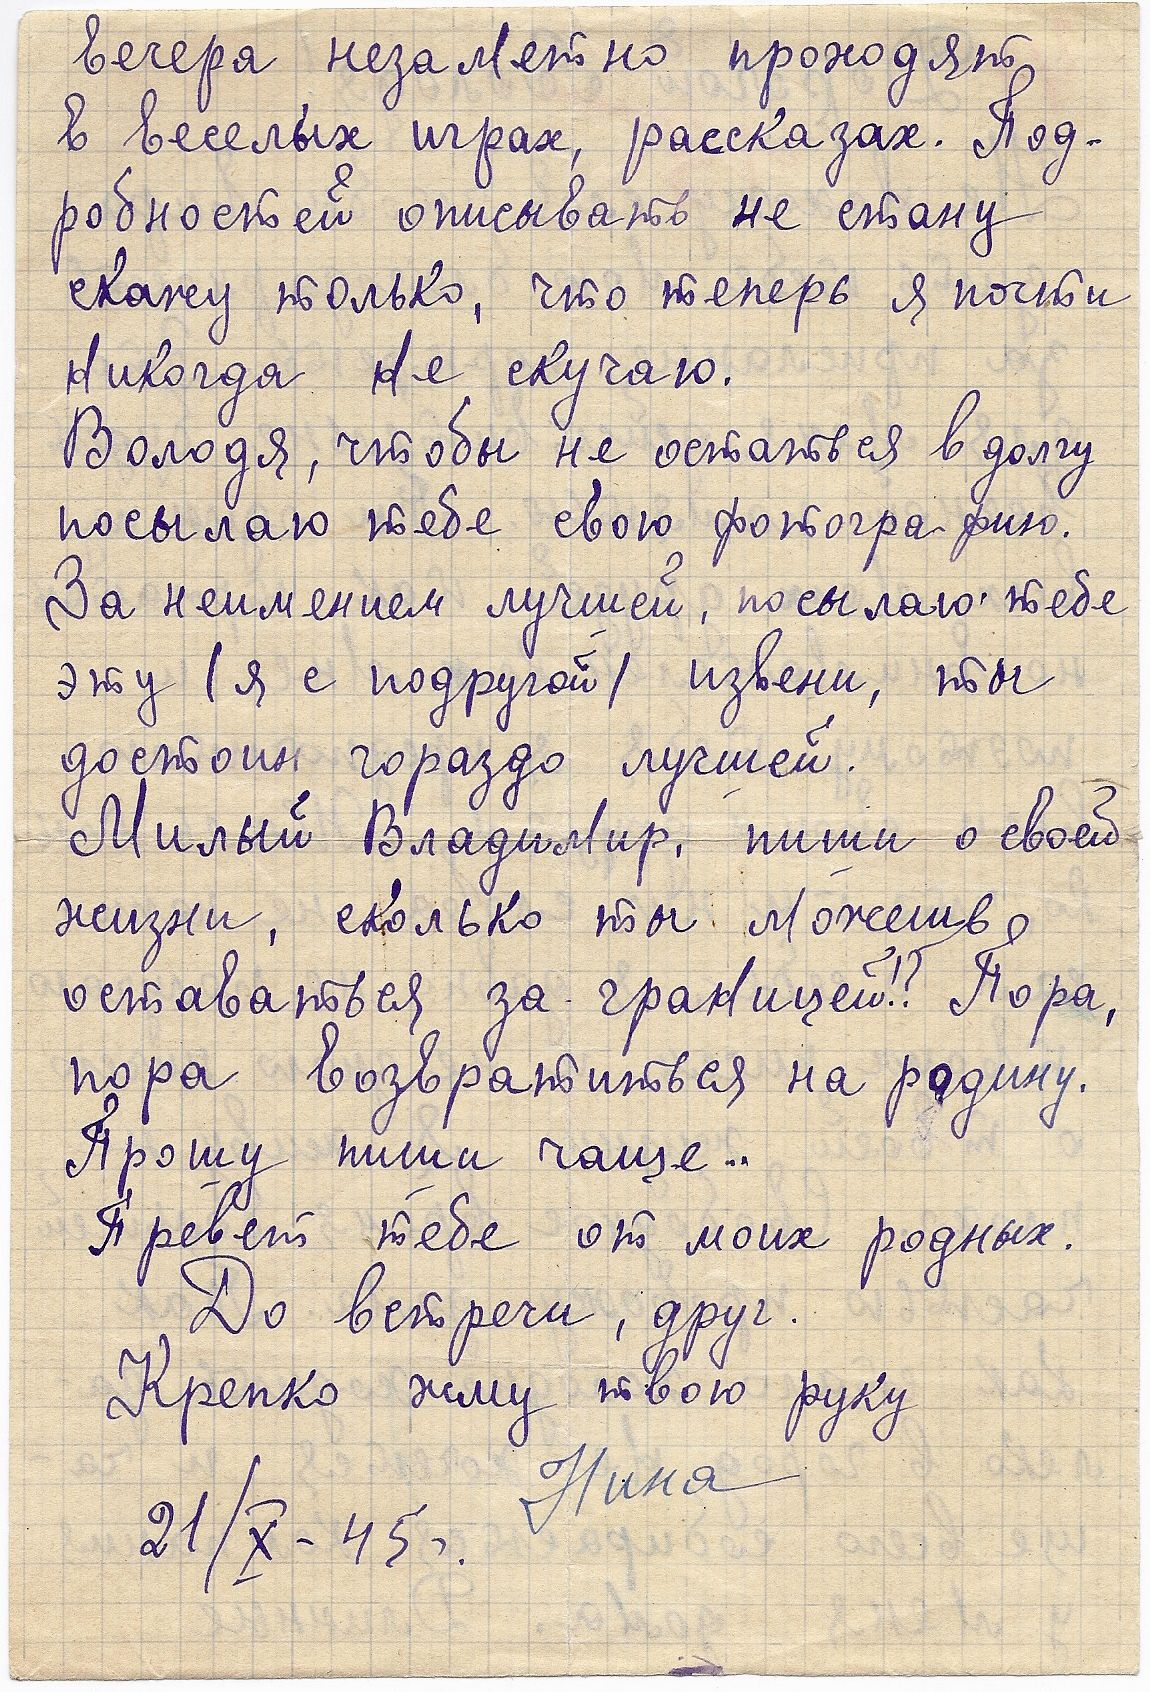 вечера незаметно проходят
в веселых играх, рассказах. Под-
робностей описывать не стану
скажу только, что теперь я почти
никогда не скучаю.
Володя, чтобы не остаться в долгу
посылаю тебе свою фотографию.
За неимением лучшей, посылаю тебе
эту (я с подругой) извени, ты
достоин гораздо лучшей.
Милый Владимир, пиши о своей
жизни, сколько ты можешь
оставаться за границей!? Пора,
пора возвратиться на родину.
Прошу пиши чаще..
Превет тебе от моих родных.
До встречи, друг.
Крепко жму твою руку
Нина
21/X - 45 г.